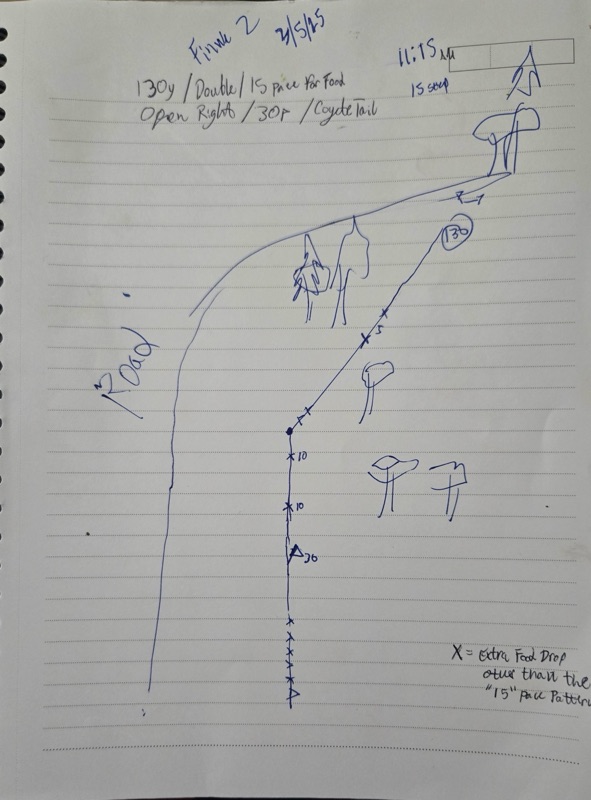 3/5/25
11:15 AM
130y / Double / 15 pace for Food
15 step
Open Right / 30r / Coyote Tail
130
5
Road
10
10
30
X = Extra Food Drop
other than the
"15" pace Pattern